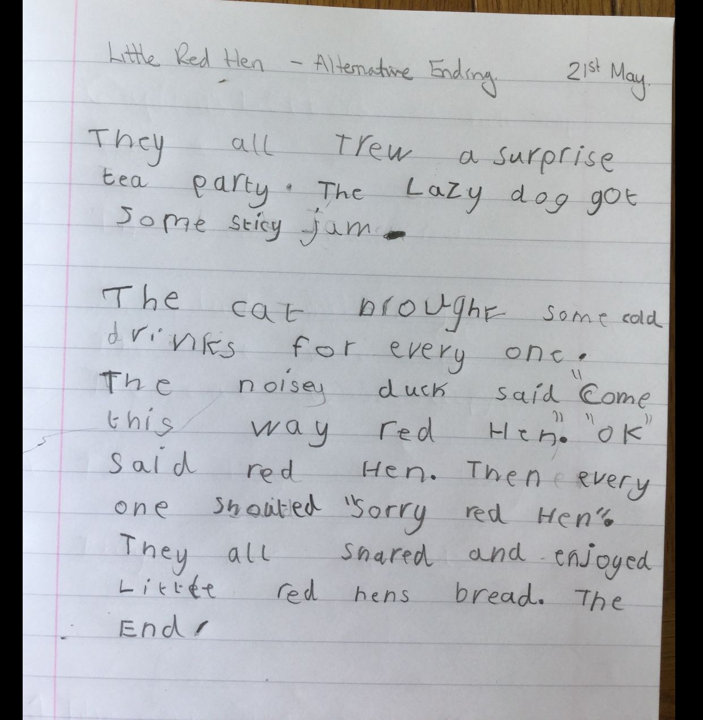 Little Red Hen - Alternative Ending. 21st May.
They all Trew a surprise
tea party. The Lazy dog got
some sticy jam.
The cat brought some cold
drinks for every one.
The noisey duck said "Come
this way red Hen". "OK"
said red Hen. Then every
one shouted "Sorry red Hen".
They all shared and enjoyed
Little red hens bread. The
End.